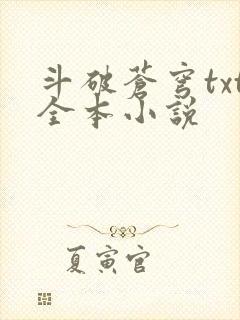 斗破蒼穹txt
全本小說
夏寅官